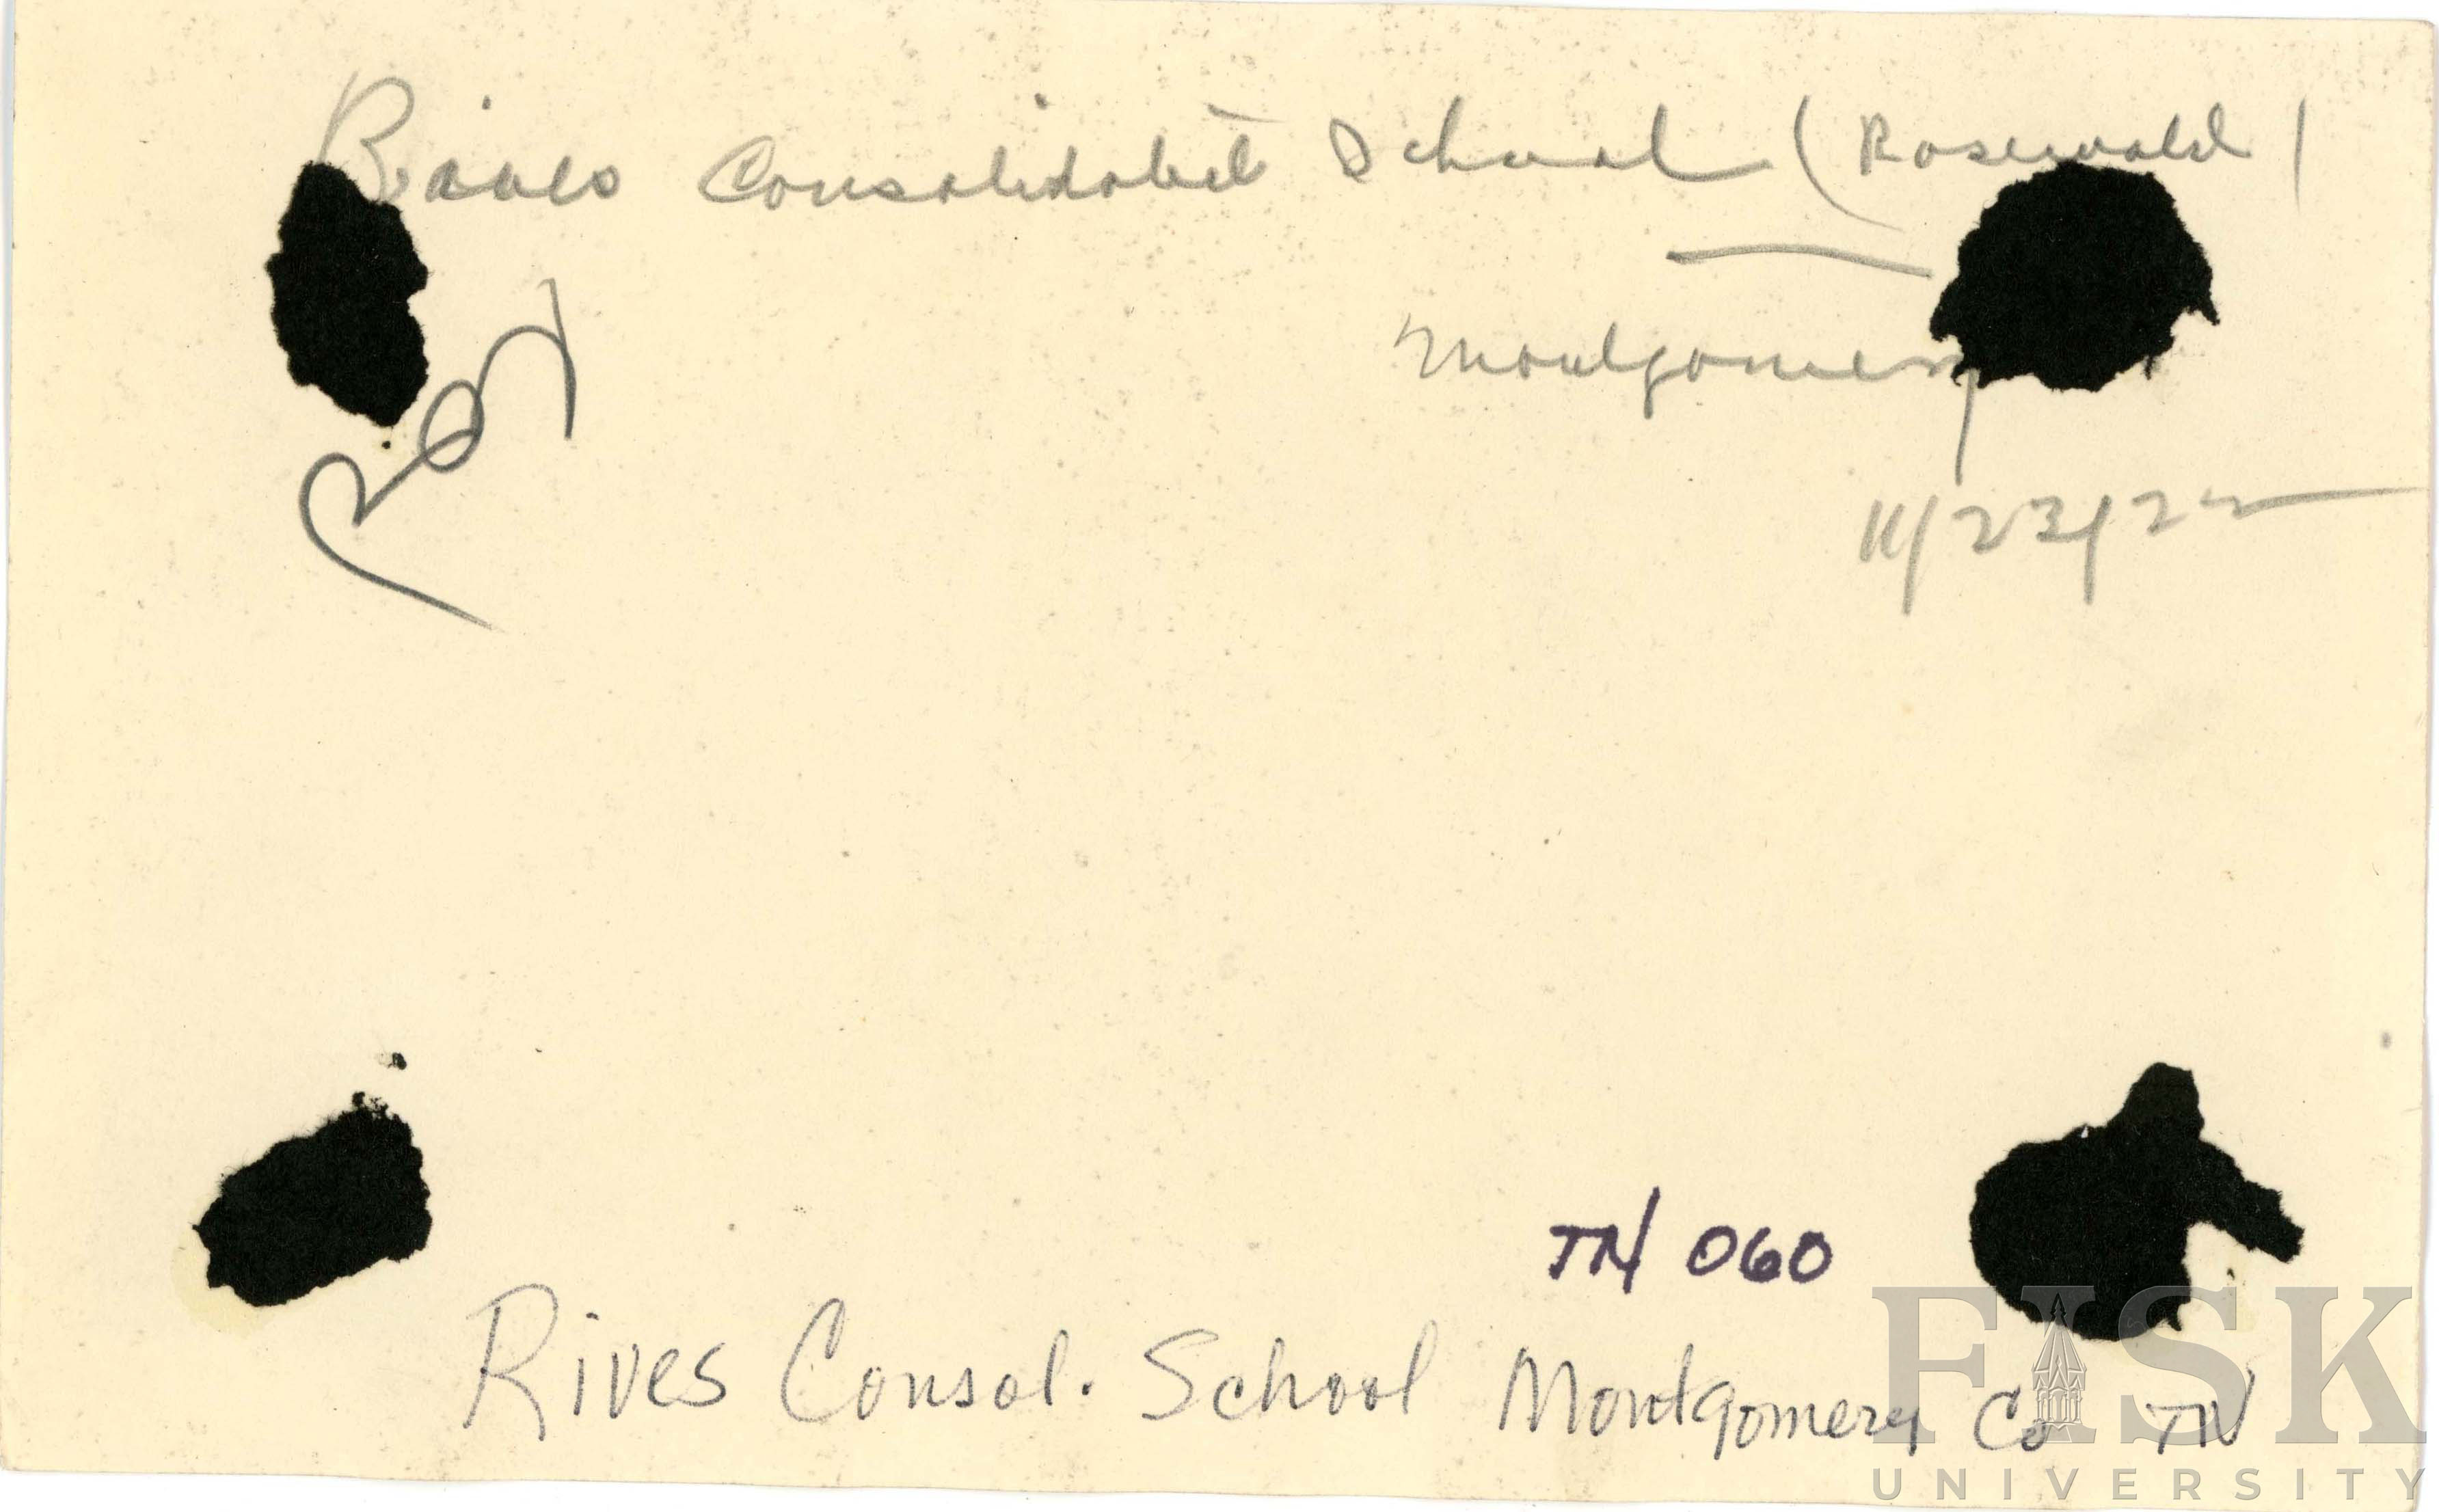 Rives Consolidated School (Rosenwald)
Montgomery
11/23/22
TN 060
Rives Consol. School Montgomery Co TN
FISK
UNIVERSITY